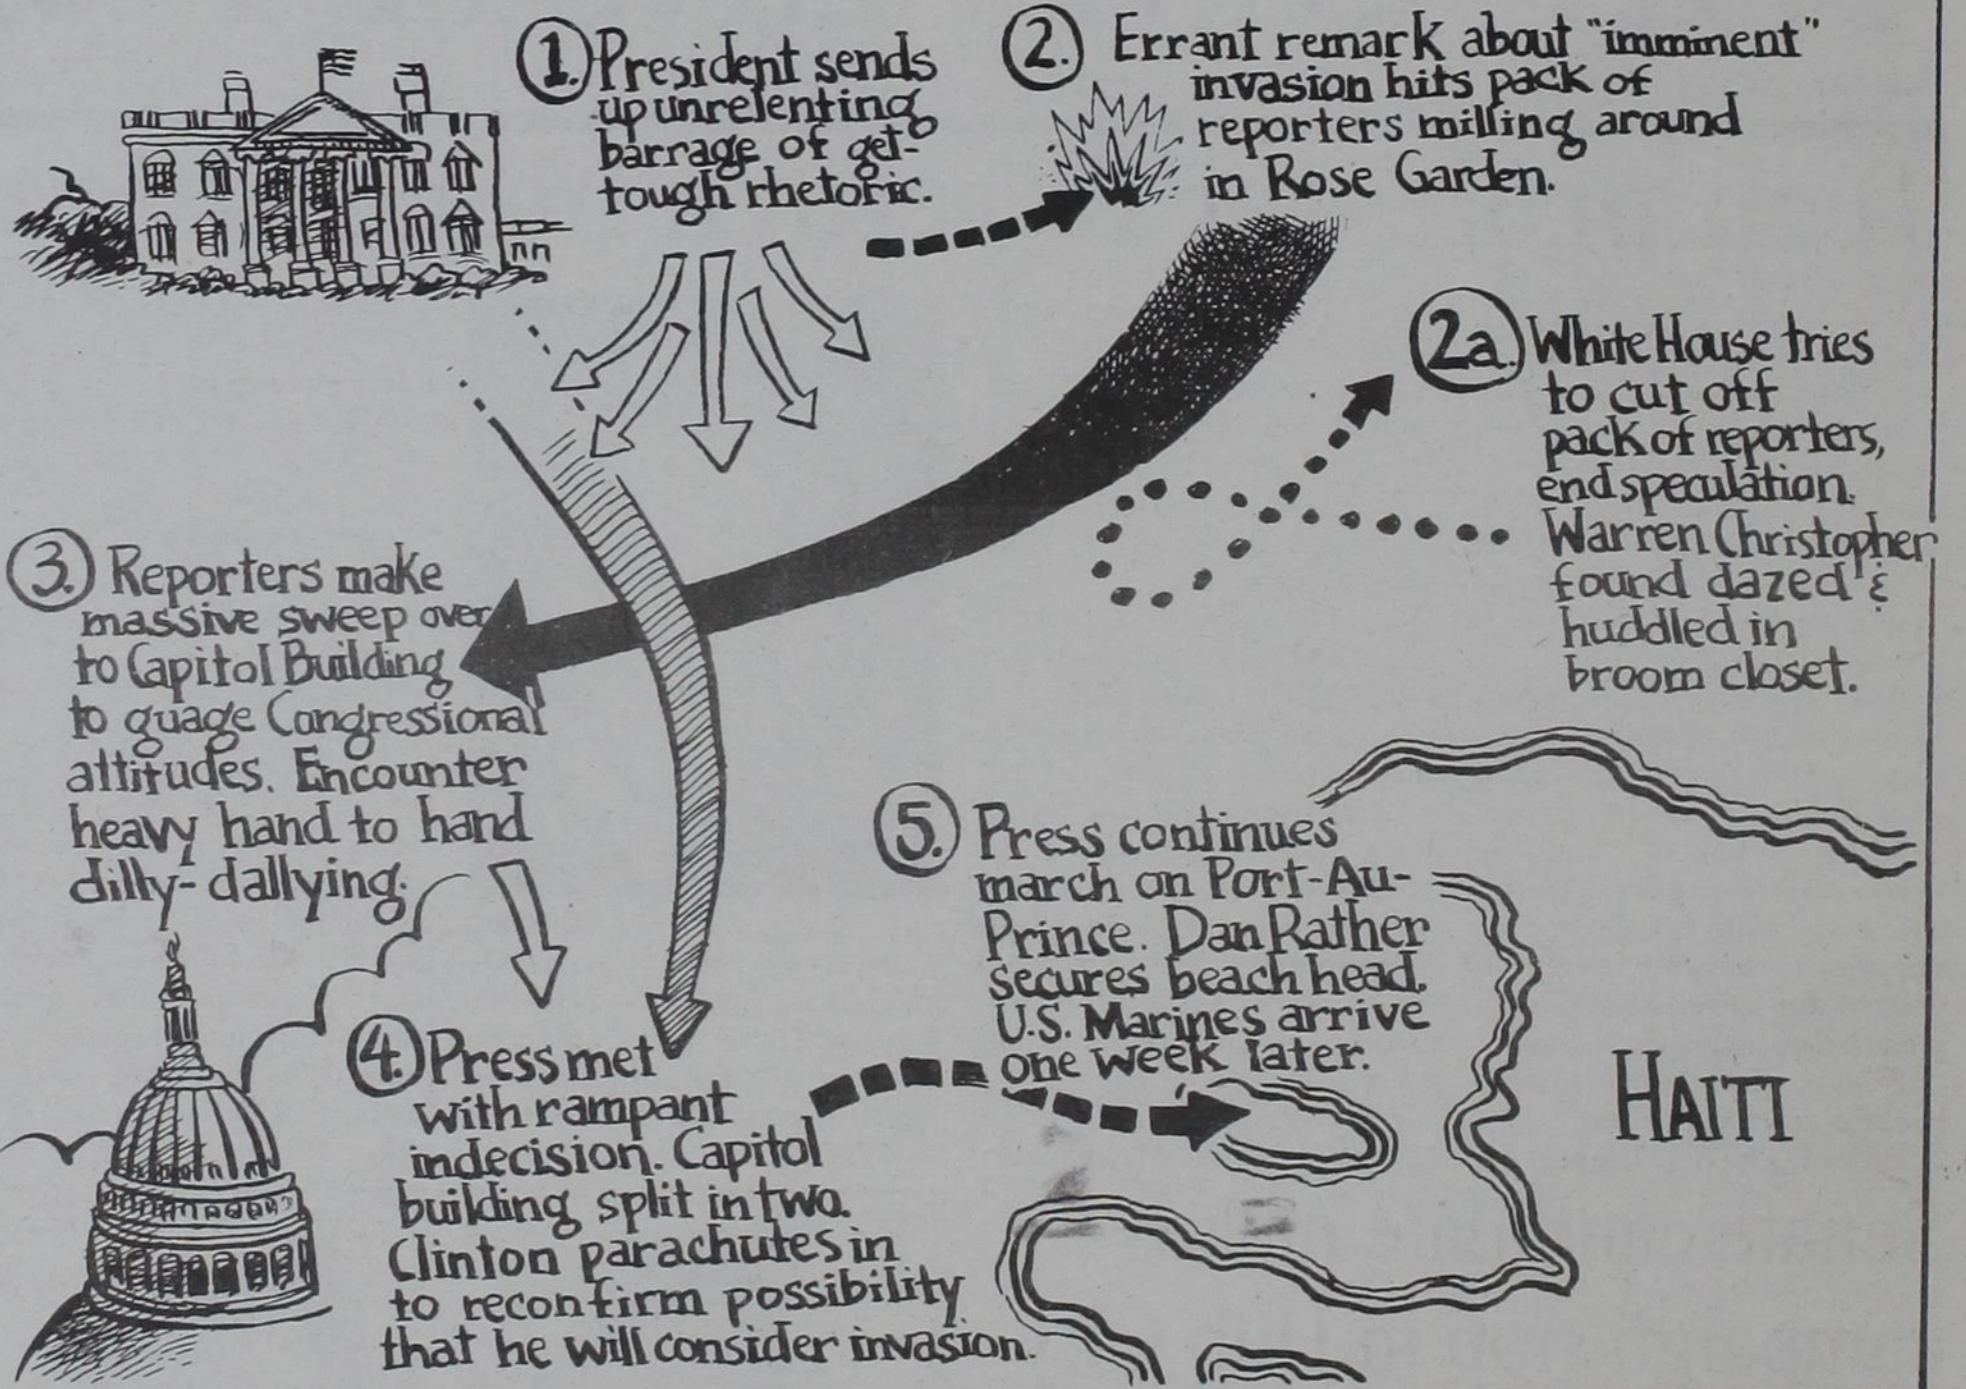 1. President sends
up unrelenting
barrage of get-
tough rhetoric.
2. Errant remark about "imminent"
invasion hits pack of
reporters milling around
in Rose Garden.
2a. White House tries
to cut off
pack of reporters,
end speculation.
Warren Christopher
found dazed &
huddled in
broom closet.
3. Reporters make
massive sweep over
to Capitol Building
to guage Congressional
attitudes. Encounter
heavy hand to hand
dilly-dallying.
4. Press met
with rampant
indecision. Capitol
building split in two.
Clinton parachutes in
to reconfirm possibility
that he will consider invasion.
5. Press continues
march on Port-Au-
Prince. Dan Rather
secures beach head.
U.S. Marines arrive
one week later.
HAITI